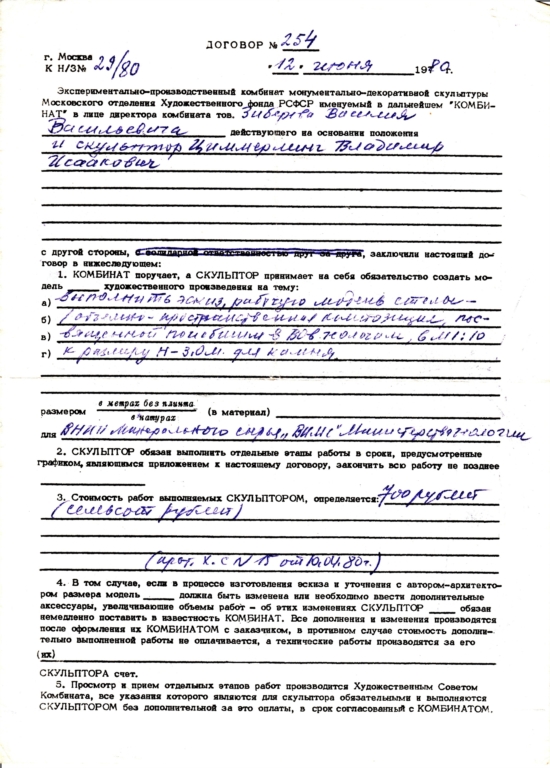 ДОГОВОР № 254
г. Москва
К Н/З№ 29/80
"12" июня 1980.
Экспериментально-производственный комбинат монументально-декоративной скульптуры
Московского отделения Художественного фонда РСФСР именуемый в дальнейшем "КОМБИ-
НАТ" в лице директора комбината тов. Зиберова Василия
Васильевича действующего на основании положения
и скульптор Циммерлинг Владимир
Исаакович
с другой стороны, с солидарной ответственностью друг за друга, заключили настоящий до-
говор в нижеследующем:
1. КОМБИНАТ поручает, а СКУЛЬПТОР принимает на себя обязательство создать мо-
дель художественного произведения на тему:
а) выполнить эскиз, рабочую модель стелы-
б) объемно-пространственная композиция, пос-
в) вященной погибшим в ВОв геологам, в М 1:10
г) к размеру H-3.0м. для камня.
размером в метрах без плинта (в материал)
в натурах
для ВНИИ минерального сырья „ВИМС" Министерства геологии
2. СКУЛЬПТОР обязан выполнить отдельные этапы работ в сроки, предусмотренные
графиком, являющимся приложением к настоящему договору, закончить всю работу не позднее
3. Стоимость работ выполняемых СКУЛЬПТОРОМ, определяется: 700 рублей
(семьсот рублей)
(прот. Х.С N 15 от 10.04.80г.)
4. В том случае, если в процессе изготовления эскиза и уточнения с автором-архитекто-
ром размера модель должна быть изменена или необходимо ввести дополнительные
аксессуары, увеличивающие объемы работ - об этих изменениях СКУЛЬПТОР обязан
немедленно поставить в известность КОМБИНАТ. Все дополнения и изменения производятся
после оформления их КОМБИНАТОМ с заказчиком, в противном случае стоимость дополни-
тельно выполненной работы не оплачивается, а технические работы производятся за его
(их)
СКУЛЬПТОРА счет.
5. Просмотр и прием отдельных этапов работ производится Художественным Советом
Комбината, все указания которого являются для скульптора обязательными и выполняются
СКУЛЬПТОРОМ без дополнительной за это оплаты, в срок согласованный с КОМБИНАТОМ.